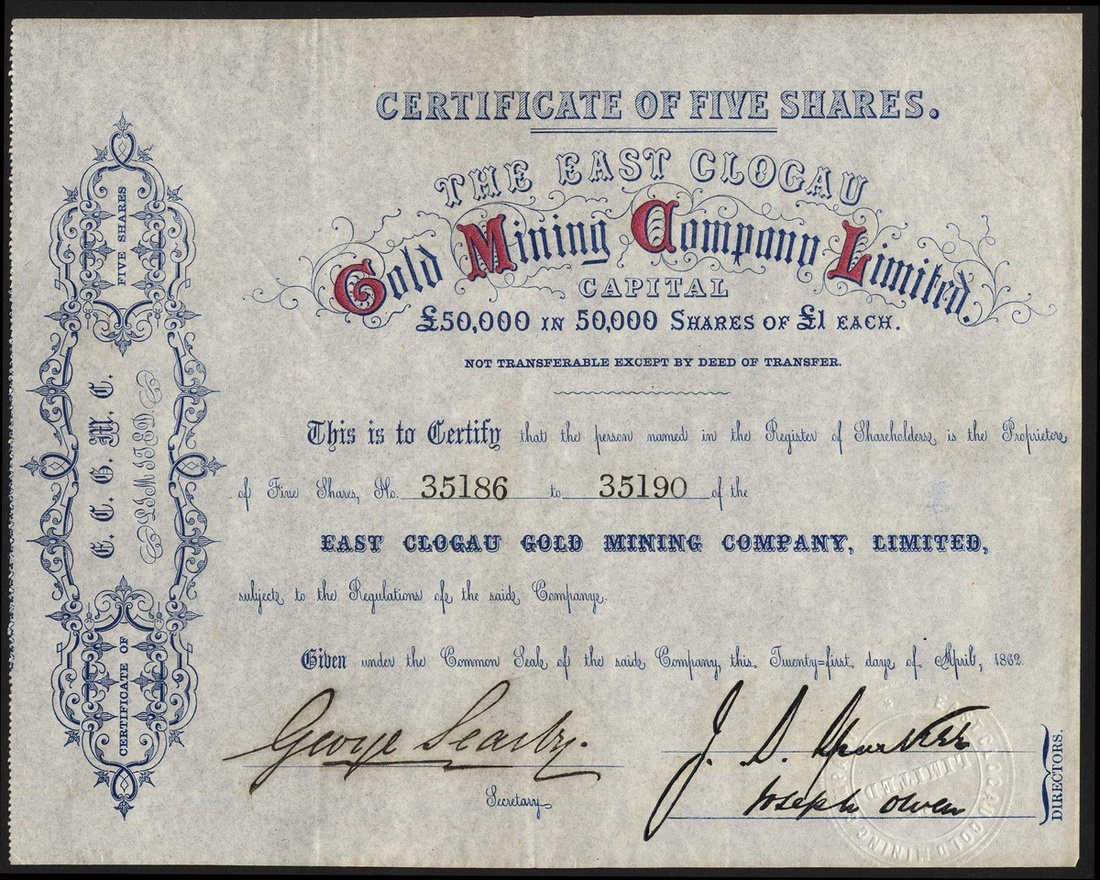 CERTIFICATE OF FIVE SHARES.
THE EAST CLOGAU
Gold Mining Company Limited.
CAPITAL
£50,000 IN 50,000 SHARES OF £1 EACH.
NOT TRANSFERABLE EXCEPT BY DEED OF TRANSFER.
This is to Certify that the person named in the Register of Shareholders is the Proprietor
of Five Shares, No. 35186 to 35190 of the
EAST CLOGAU GOLD MINING COMPANY, LIMITED,
subject to the Regulations of the said Company.
Given under the Common Seal of the said Company, this Twenty=first day of April, 1862.
George Searby.
Secretary
J. D.
Joseph Owen
DIRECTORS.
EAST CLOGAU GOLD MINING
LIMITED
CERTIFICATE OF
E. C. G. M. C.
LIMITED
FIVE SHARES